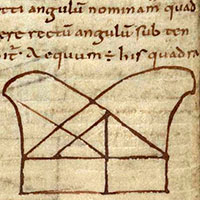 tti angulū nominam quad
ere rectū angulū sub ten
it. Aequum ÷ his quadra